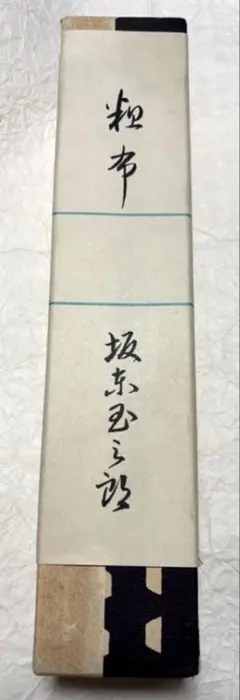 粗布
坂東玉三郎